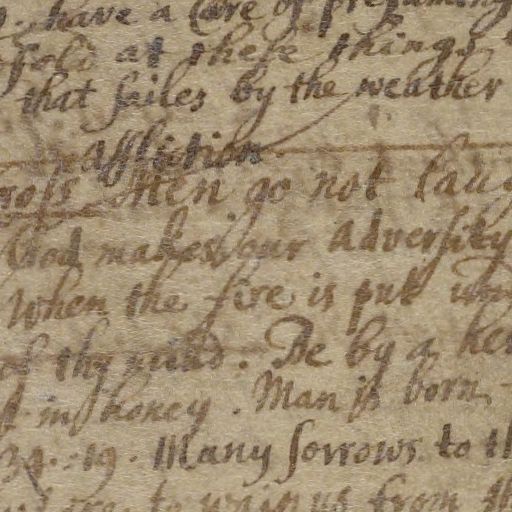 have a Care of presuming
at these things
that sailes by the weather
affliction
Men go not laug
God makes our Adversity
When the fire is put und
of thy mind. Be by a
in honey. Man is born
34. 19. Many sorrows to th
to us from th